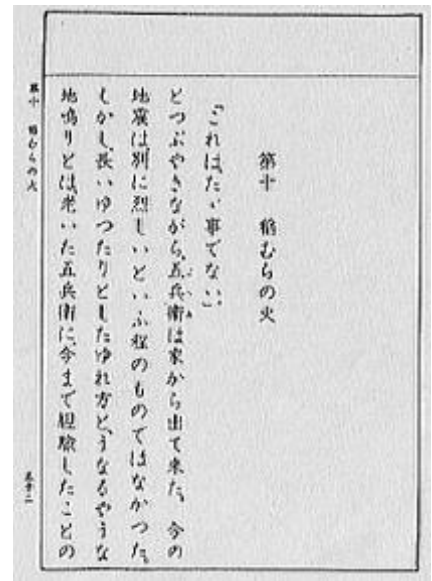 第十 稻むらの火
「これは、たゞ事でない。」
とつぶやきながら、五兵衛は家から出て來た。今の
地震は、別に烈しいといふ程のものではなかつた。
しかし、長いゆつたりとしたゆれ方と、うなるやうな
地鳴りとは、老いた五兵衛に、今まで經驗したことの
第十 稻むらの火